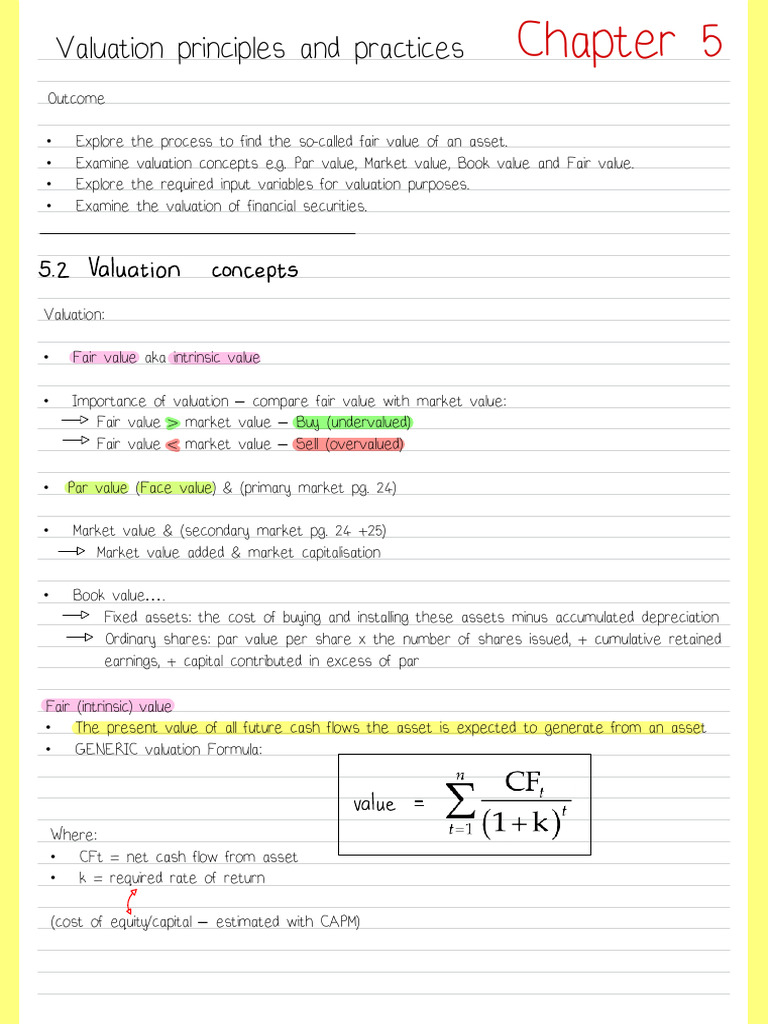 Valuation principles and practices Chapter 5
Outcome
• Explore the process to find the so-called fair value of an asset.
• Examine valuation concepts e.g. Par value, Market value, Book value and Fair value.
• Explore the required input variables for valuation purposes.
• Examine the valuation of financial securities.
5.2 Valuation concepts
Valuation:
• Fair value aka intrinsic value
• Importance of valuation – compare fair value with market value:
→ Fair value > market value – Buy (undervalued)
→ Fair value < market value – Sell (overvalued)
• Par value (Face value) & (primary market pg. 24)
• Market value & (secondary market pg. 24 +25)
→ Market value added & market capitalisation
• Book value….
→ Fixed assets: the cost of buying and installing these assets minus accumulated depreciation
→ Ordinary shares: par value per share x the number of shares issued, + cumulative retained
earnings, + capital contributed in excess of par
Fair (intrinsic) value
• The present value of all future cash flows the asset is expected to generate from an asset
• GENERIC valuation Formula:
value = ∑_{t=1}^{n} CF_t / (1+k)^t
Where:
• CFt = net cash flow from asset
• k = required rate of return
(cost of equity/capital – estimated with CAPM)